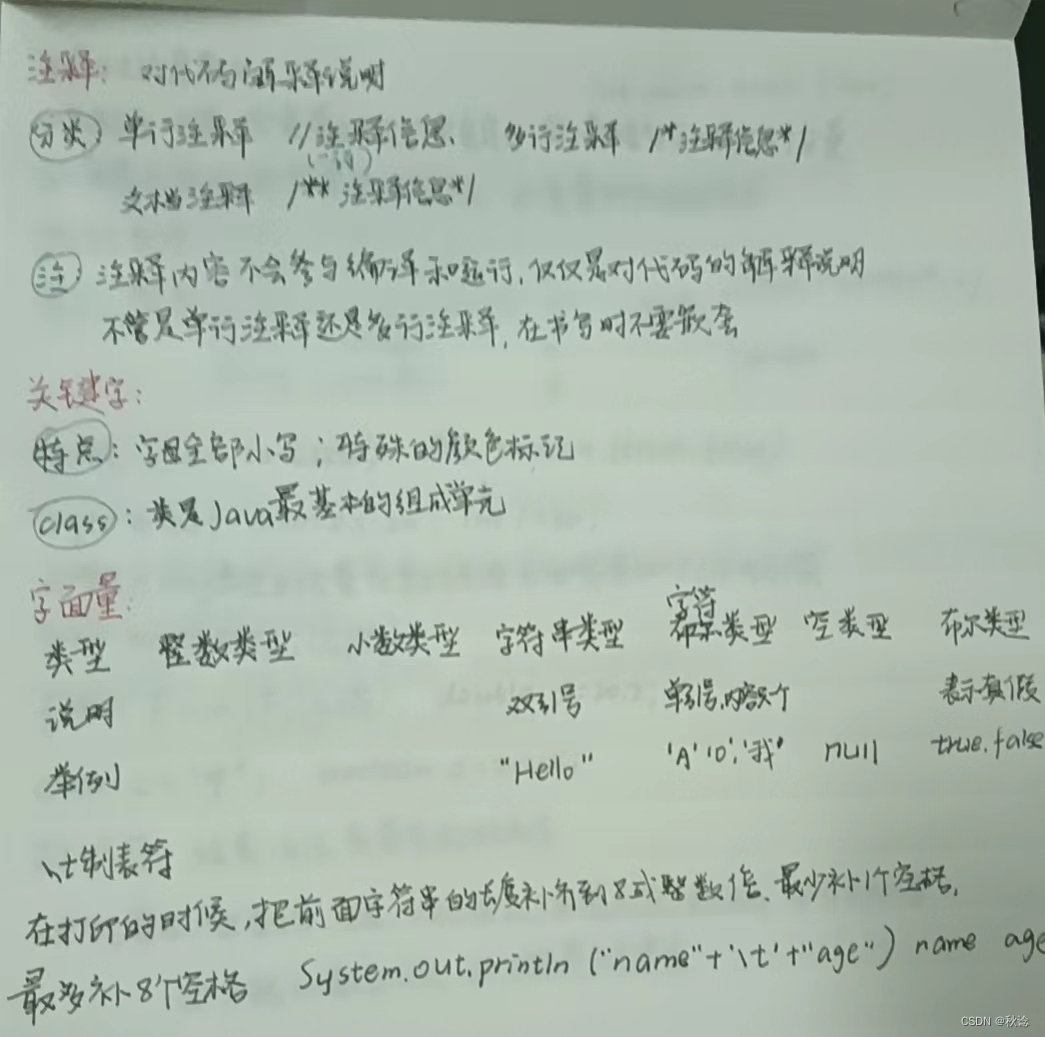 注释: 对代码解释说明
分类: 单行注释 //注释信息、 多行注释 /*注释信息*/
文档注释 /** 注释信息*/
注: 注释内容不会参与编译和运行,仅仅是对代码的解释说明
不管是单行注释还是多行注释,在书写时不要嵌套
关键字:
特点: 字母全部小写;特殊的颜色标记
class: 类是Java最基本的组成单元
字面量:
字符
类型 整数类型 小数类型 字符串类型 布尔类型 空类型 布尔类型
说明 双引号 单引号,内容1个 表示真假
举例 "Hello" 'A' '0','我' null true.false
\t制表符
在打印的时候,把前面字符串的长度补齐到8或整数倍、最少补1个空格,
最多补8个空格 System.out.println ("name"+'\t'+"age") name age
CSDN @秋谂